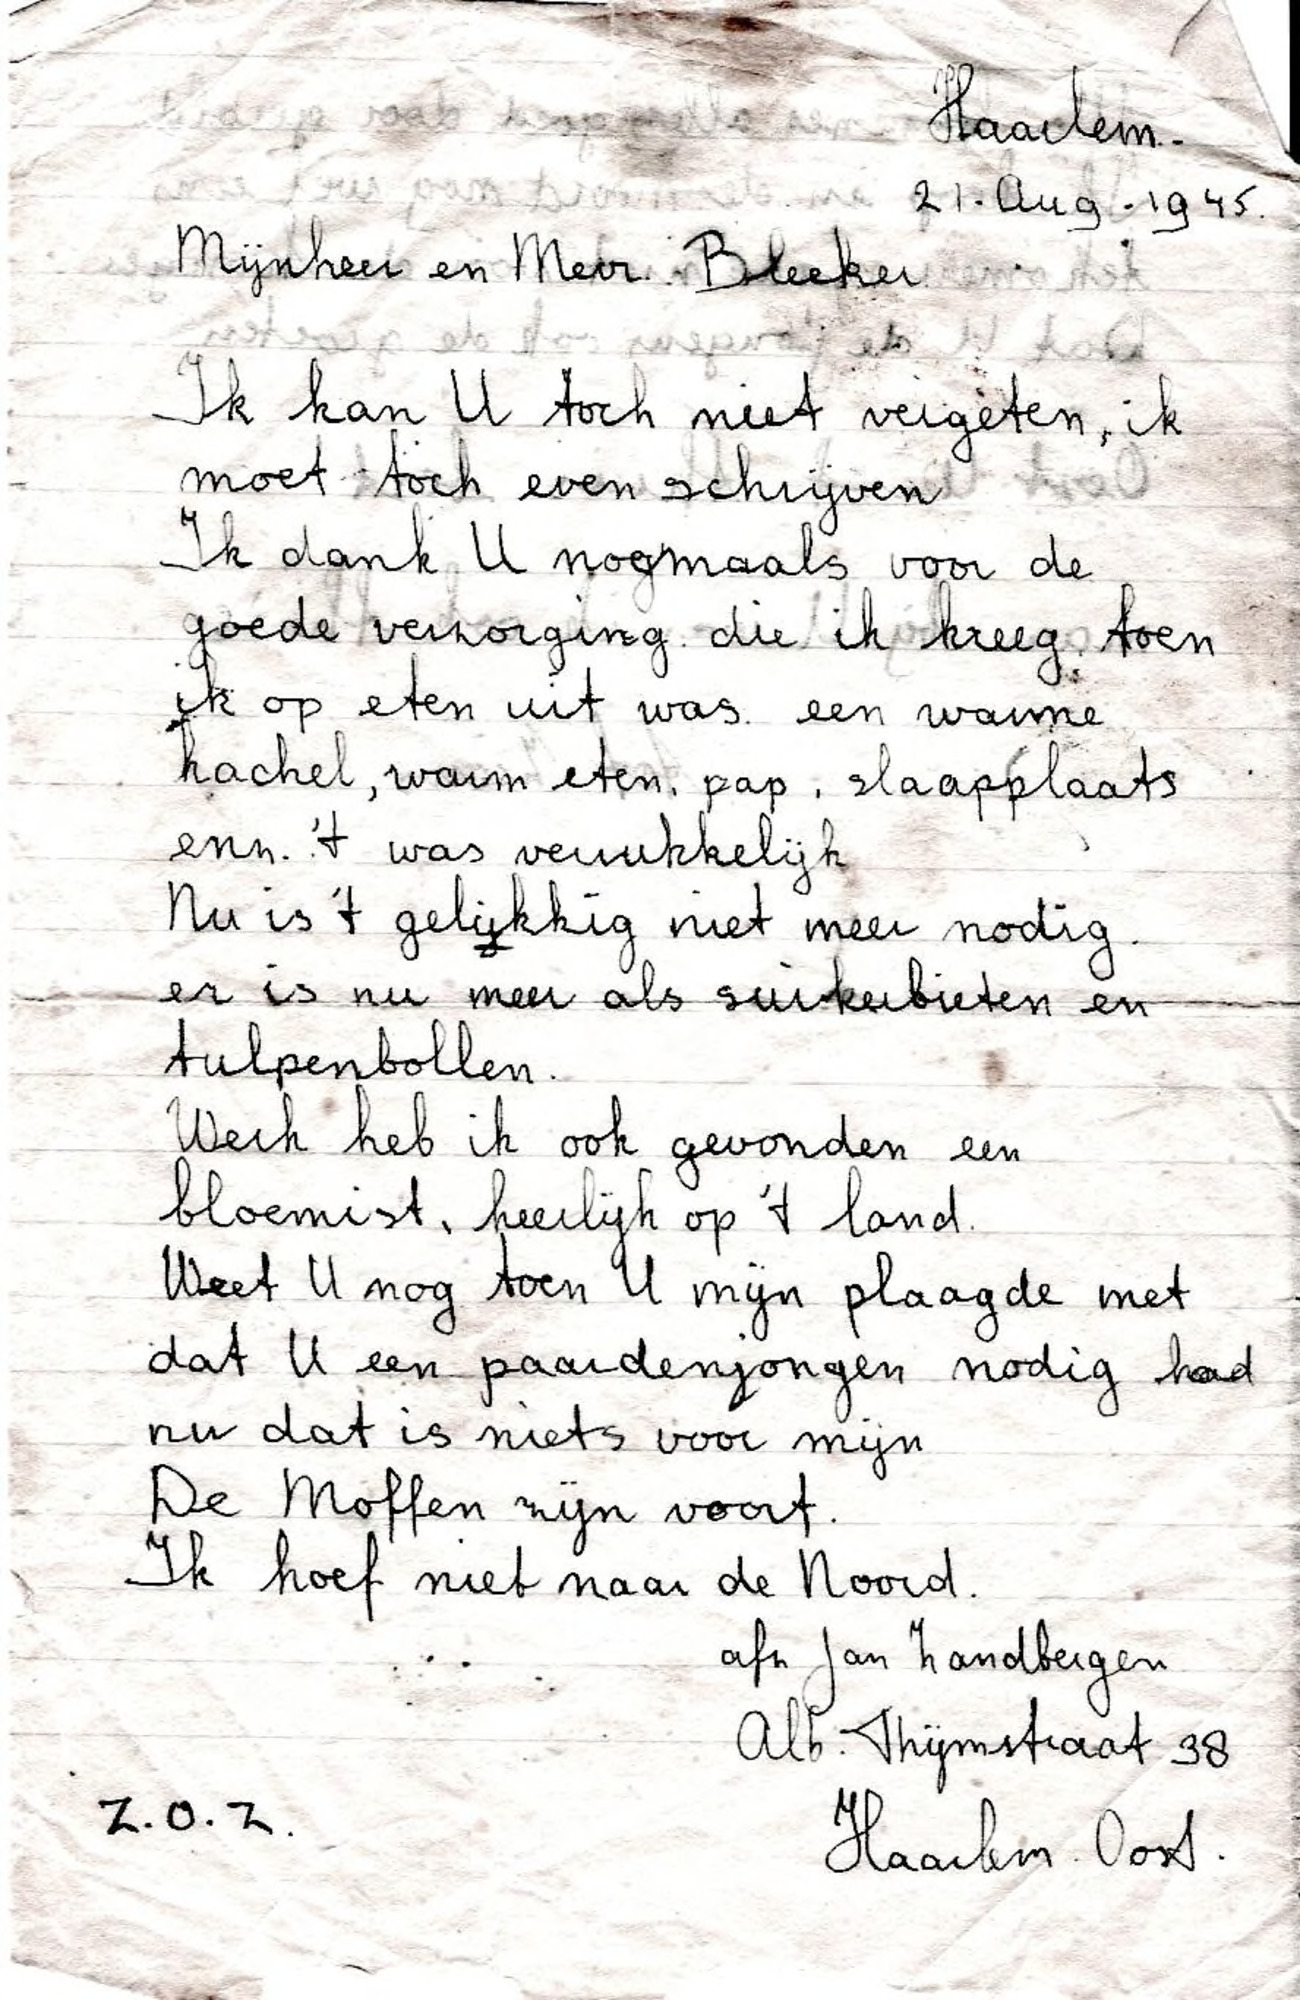 Haarlem.-
21. Aug. 1945.
Mijnheer en Mevr. Bleeker
Ik kan U toch niet vergeten, ik
moet toch even schrijven
Ik dank U nogmaals voor de
goede verzorging die ik kreeg toen
ik op eten uit was. een warme
kachel, warm eten, pap, slaapplaats
enz. 't was verrukkelijk
Nu is 't gelijkkig niet meer nodig.
er is nu meer als suikerbieten en
tulpenbollen.
Werk heb ik ook gevonden een
bloemist, heerlijk op 't land.
Weet U nog toen U mijn plaagde met
dat U een paardenjongen nodig had
nu dat is niets voor mijn
De Moffen zijn voort.
Ik hoef niet naar de Noord.
afz Jan Zandbergen
Alb. Thijmstraat 38
Haarlem Oost.
Z.O.Z.